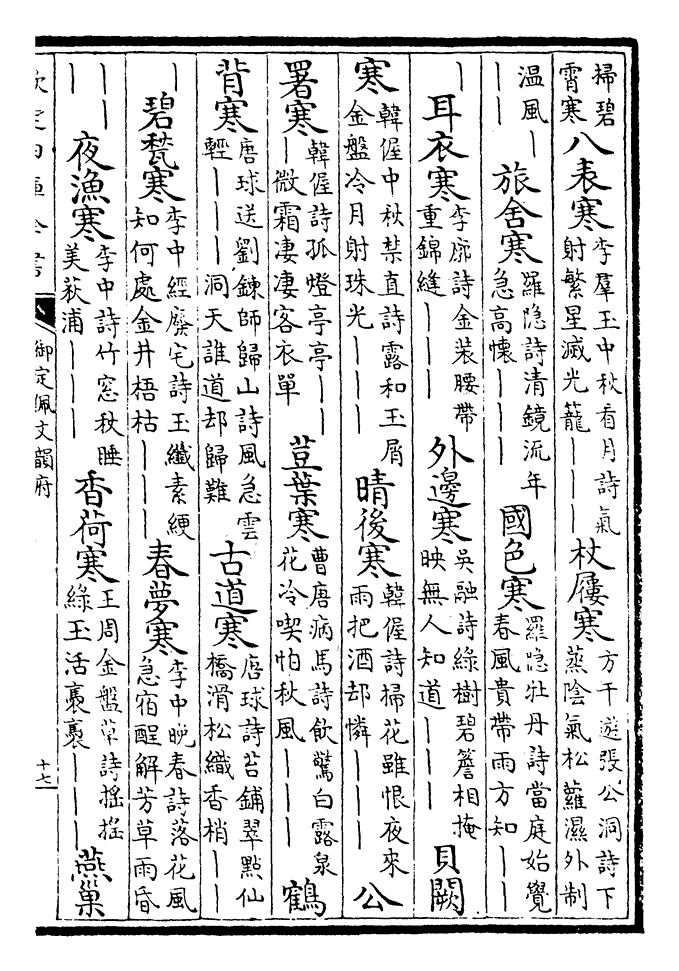 掃碧霄寒八表寒李羣玉中秋看月詩氣射繁星滅光籠丨丨丨杖屨寒方干遊張公洞詩下蒸陰氣松蘿濕外制
溫風丨丨丨旅舍寒羅隱詩清鏡流年急高懷丨丨丨國色寒羅隱牡丹詩當庭始覺春風貴帶雨方知丨丨
丨耳衣寒李廓詩金裝腰帶重錦縫丨丨丨外邊寒吳融詩綠樹碧簷相掩映無人知道丨丨丨貝闕
寒韓偓中秋禁直詩露和玉屑金盤冷月射珠光丨丨丨晴後寒韓偓詩掃花雖恨夜來雨把酒却憐丨丨丨公
署寒韓偓詩孤燈亭亭丨丨丨微霜凄凄客衣單荳葉寒曹唐病馬詩飲驚白露泉花冷喫怕秋風丨丨丨鶴
背寒唐球送劉鍊師歸山詩風急雲輕丨丨丨洞天誰道却歸難古道寒唐球詩苔鋪翠點仙橋滑松織香梢丨丨
丨碧甃寒李中經廢宅詩玉纖素綆知何處金井梧枯丨丨丨春夢寒李中晚春詩落花風急宿酲解芳草雨昏
丨丨丨夜漁寒李中詩竹窓秋睡美荻浦丨丨丨香荷寒王周金盤草詩搖搖綠玉活裊裊丨丨丨燕巢
欽定四庫全書
御定佩文韻府
十七